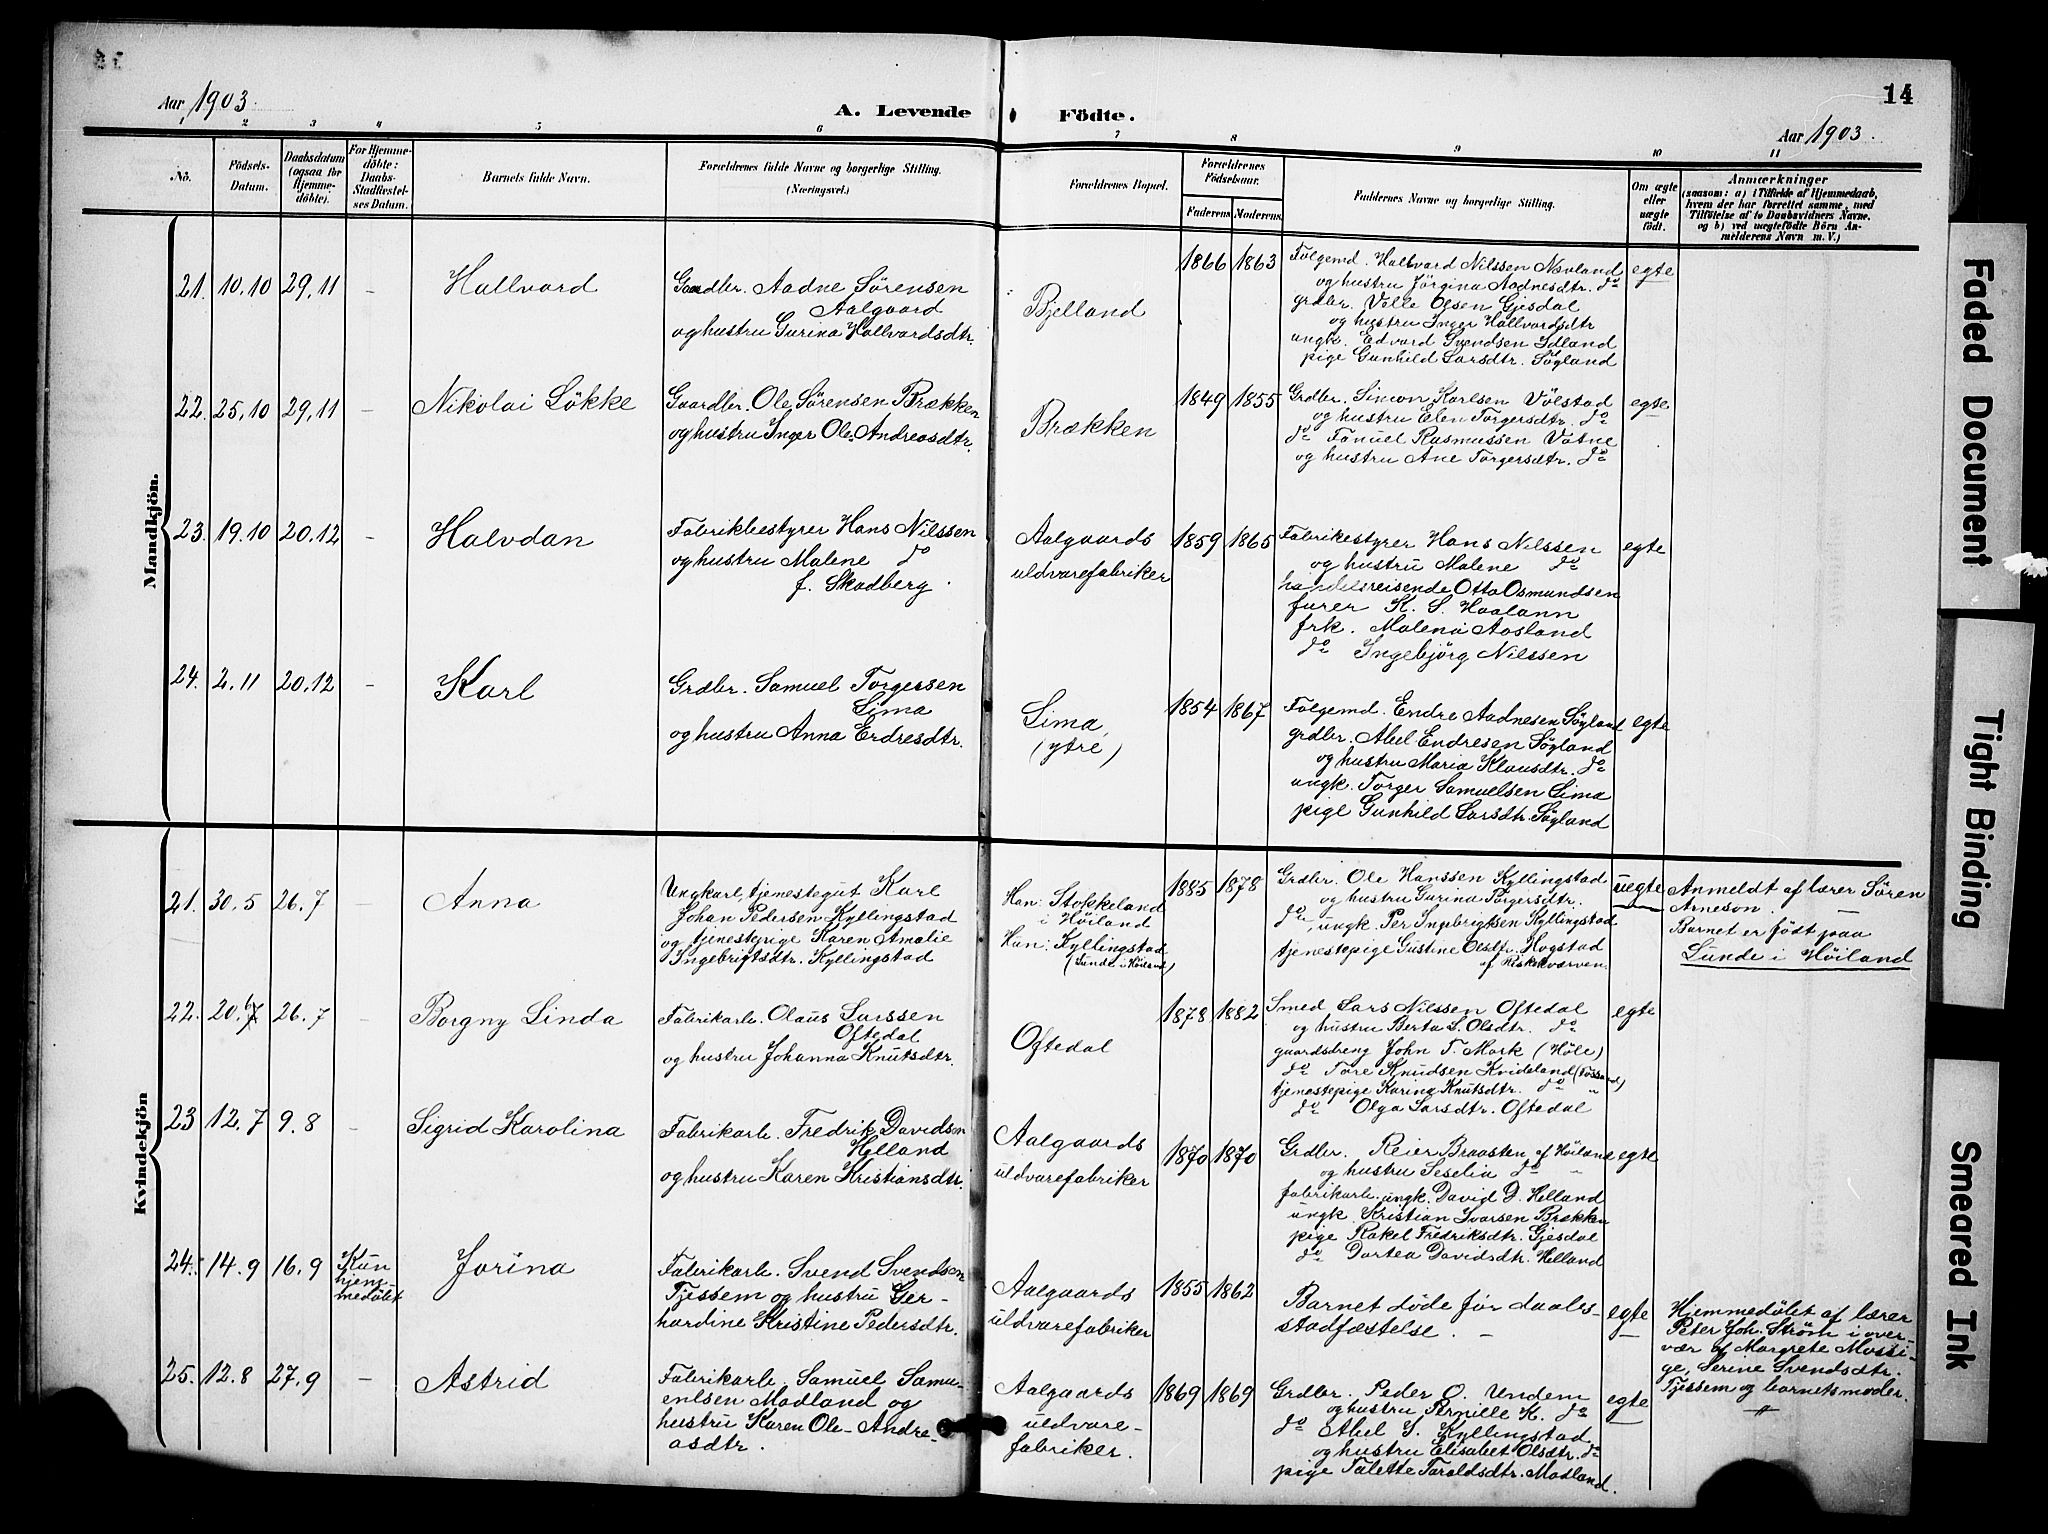 Aar 1903.
A. Levende
Födte.
14
Aar 1903.
1 2 3 4 5 6 7 8 9 10 11
No.
Födsels-
Datum.
Daabsdatum
(ogsaa for
Hjemme-
döbte).
For Hjemme-
döbte:
Daabs-
Stadfæstel-
ses Datum.
Barnets fulde Navn.
Forældrenes fulde Navne og borgerlige Stilling.
(Næringsvei.)
Forældrenes Bopæl.
Forældrenes
Födselsaar.
Faderens. Moderens.
Faddernes Navne og borgerlige Stilling.
Om ægte
eller
uægte
födt.
Anmærkninger
(saasom: a) i Tilfælde af Hjemmedaab,
hvem der har forrettet samme, med
Tilföielse af to Daabsvidners Navne,
og b) ved uægtefödte Börn An-
melderens Navn m. V.)
Mandkjön.
21. 10.10 29.11 - Hallvard
Gaardbr. Aadne Sørensen
Aalgaard
og hustru Gurina Hallvardsdtr.
Bjelland
1866 1863
Folgemd. Hallvard Nilssen Novland
og hustru Jörgina Aadnesdtr. do
grdbr. Volle Olsen Gjesdal
og hustru Inger Hallvardsdtr
ungk. Edvard Svendsen Idland
pige Gunhild Larsdtr. Søyland
egte
22. 25.10 29.11 - Nikolai Løkke
Gaardbr. Ole Sørensen Brækken
og hustru Inger Ole-Andreasdtr.
Brækken
1849 1855
Grdbr. Simon Karlsen Vølstad
og hustru Elen Torgersdtr. do
do Fanuel Rasmussen Vatne
og hustru Ane Torgersdtr. do
egte
23. 19.10 20.12 - Halvdan
Fabrikbestyrer Hans Nilssen
og hustru Malene do
f. Skadberg.
Aalgaards
uldvarefabriker
1859 1865
Fabrikestyrer Hans Nilssen
og hustru Malene do
handelsreisende Otto Osmundsen
furer K. S. Haalann
frk. Malena Aasland
do Ingebjørg Nilssen
egte
24. 2.11 20.12 - Karl
Grdbr. Samuel Torgersen
Lima
og hustru Anna Erdresdtr.
Lima,
(ytre)
1854 1867
Folgemd. Endre Aadnesen Søyland
grdbr. Abel Endresen Søyland
og hustru Maria Klausdtr. do
ungk. Torger Samuelsen Lima
pige Gunhild Larsdtr. Søyland
egte
Kvindekjön
21. 30.5 26.7 - Anna
Ungkarl, tjenestegut Karl
Johan Pedersen Kyllingstad
og tjenestepige Karen Amalie
Ingebrigtsdtr. Kyllingstad
Han: Stokkeland
i Höiland
Hun: Kyllingstad
(Lunde i Höiland)
1885 1878
Grdbr. Ole Hanssen Kyllingstad
og hustru Gurina Torgersdtr.
do, ungk. Per Ingebrigtsen Kyllingstad
tjenestepige Gustine Olsdtr. Hogstad
af Riskekværven.
uegte
Anmeldt af lærer Sören
Arneson.
Barnet er født paa
Lunde i Höiland
22. 20.6 26.7 - Borgny Linda
Fabrikarb. Olaus Larssen
Oftedal
og hustru Johanna Knutsdtr.
Oftedal
1878 1882
Smed Lars Nilssen Oftedal
og hustru Berta S. Olsdtr. do
gaardsdreng John T. Mork (Høle)
do Tore Knudsen Kvideland (Fossand)
tjenestepige Karina Knutsdtr. do "
do Olga Larsdtr. Oftedal
egte
23 12.7 9.8 - Sigrid Karolina
Fabrikarb. Fredrik Davidsen
Helland
og hustru Karen Kristiansdtr.
Aalgaards
uldvarefabriker
1870 1870
Grdbr. Reier Braasten af Höiland
og hustru Seselia do "
fabrikarb. ungk. David D. Helland
ungk. Kristian Ivarsen Brækken
pige Rakel Fredriksdtr. Gjesdal
do Dortea Davidsdtr. Helland
egte
24. 14.9 16.9 Kun
hjem-
medøbt
Jorina
Fabrikarb. Svend Svendsen
Tjessem og hustru Ger-
hardine Kristine Pedersdtr.
Aalgaards
uldvarefabriker
1855 1862
Barnet døde før daabs-
stadfæstelse. -
egte
Hjemmedøbt af lærer
Peter Joh. Strøm i over-
vær af Margrete Mossi-
ge, Serine Svendsdtr.
Tjessem og barnets moder.
25. 12.8 27.9 - Astrid
Fabrikarb. Samuel Samu-
elsen Madland og
hustru Karen Ole-Andre-
asdtr.
Aalgaards
uldvare-
fabriker.
1869 1869
Grdbr. Peder O. Undem
og hustru Pernille K. do
do Abel S. Kyllingstad
og hustru Elisabet Olsdtr. do
pige Talette Taraldsdtr. Madland.
egte
Faded Document
Tight Binding
Smeared Ink